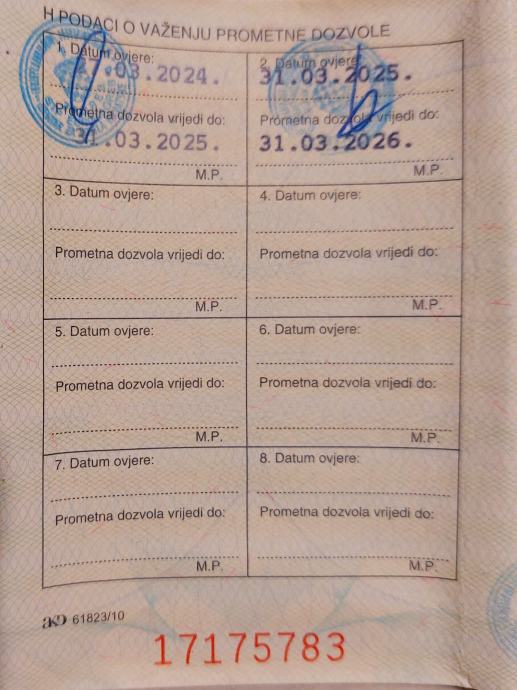 H PODACI O VAŽENJU PROMETNE DOZVOLE
1. Datum ovjere:
.03.2024.
Prometna dozvola vrijedi do:
31.03.2025.
M.P.
2. Datum ovjere:
31.03.2025.
Prometna dozvola vrijedi do:
31.03.2026.
M.P.
3. Datum ovjere:
Prometna dozvola vrijedi do:
M.P.
4. Datum ovjere:
Prometna dozvola vrijedi do:
M.P.
5. Datum ovjere:
Prometna dozvola vrijedi do:
M.P.
6. Datum ovjere:
Prometna dozvola vrijedi do:
M.P.
7. Datum ovjere:
Prometna dozvola vrijedi do:
M.P.
8. Datum ovjere:
Prometna dozvola vrijedi do:
M.P.
AKD 61823/10
17175783